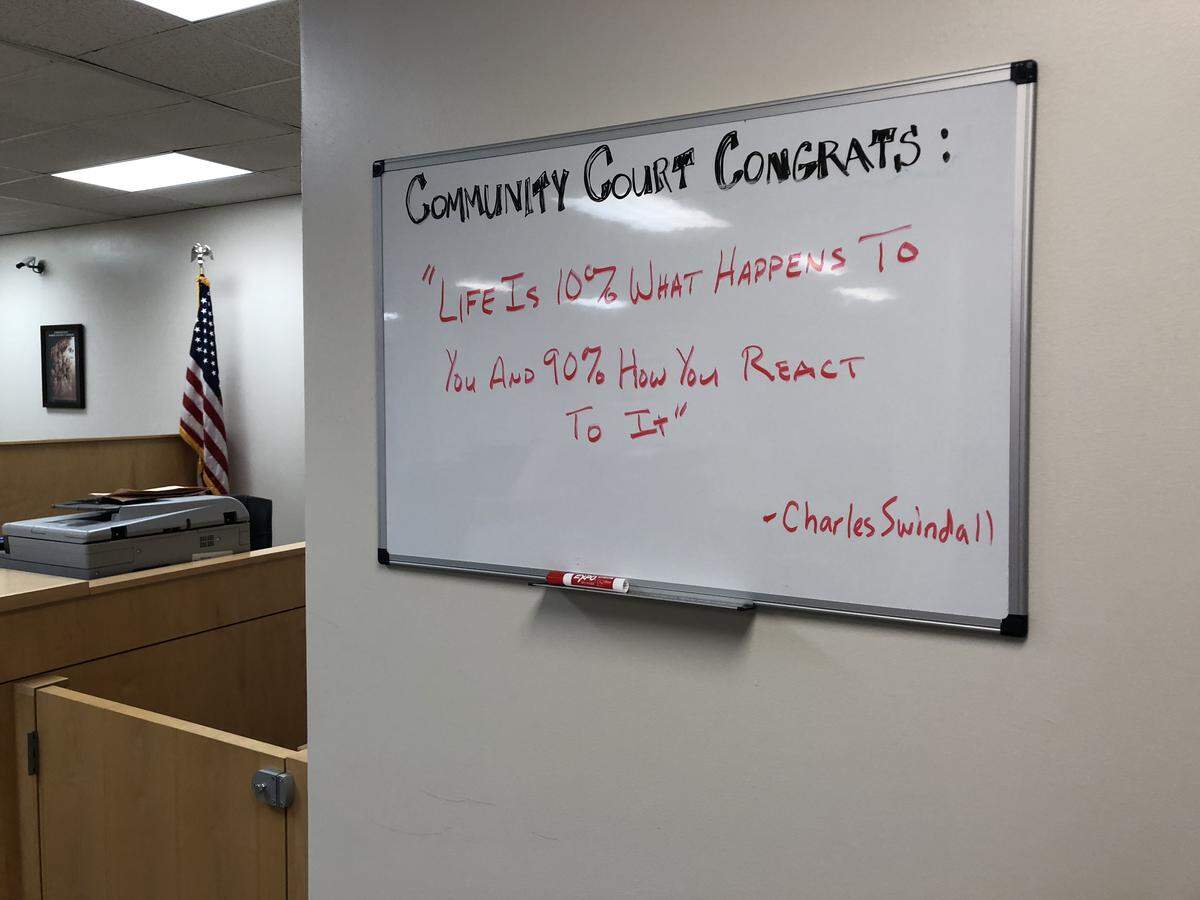 COMMUNITY COURT CONGRATS:
"LIFE IS 10% WHAT HAPPENS TO
YOU AND 90% HOW YOU REACT
TO IT"
-Charles Swindall
EXPO